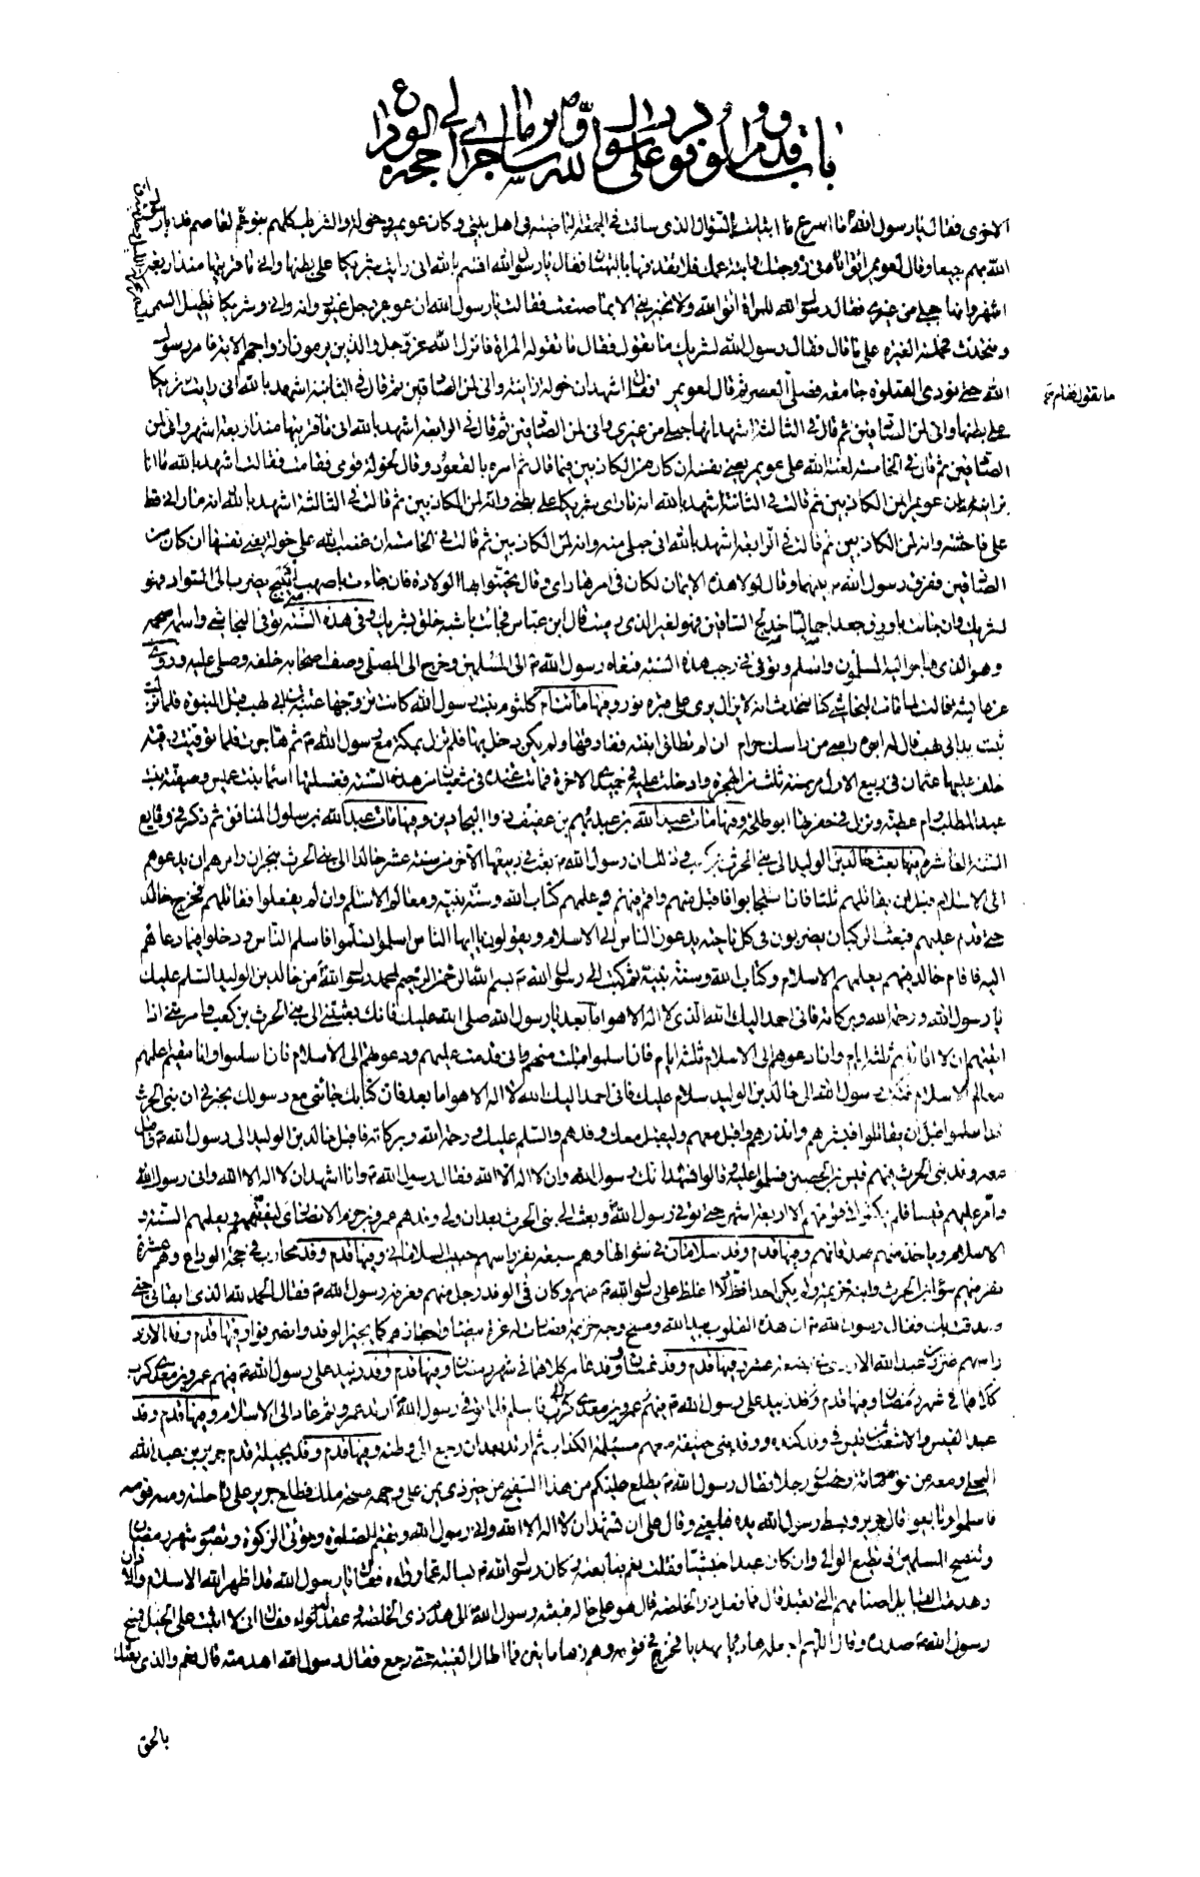 باب قدوم الوفود على رسول الله وسائر ما جرى الى حجة الوداع
الاخرى فقال يا رسول الله ما اسرع ما ابتليت بالسؤال الذى سالت فى الجمعة الماضية فى اهل بيتى وكان عويمر وخولة والشريك كلهم بنو عم لعاصم فدعا رسول
الله بهم جميعا وقال لعويمر اتق الله فى زوجتك وابنة عمك فلا تقذفها بالبهتان فقال يا رسول الله اقسم بالله انى رايت شريكا على بطنها وانى ما قربتها منذ اربعة
اشهر وانها حبلى من غيرى فقال رسول الله للمراة اتق الله ولا تخبرينى الا بما صنعت فقالت يا رسول الله ان عويمر رجل غيور وانه رانى وشريكا يطيل السمر
ويتحدث فحملته الغيرة على ما قال فقال رسول الله لشريك ما تقول فقال ما تقوله المراة فانزل الله عز وجل والذين يرمون ازواجهم الاية فامر رسول
الله حتى نودى الصلوة جامعة فصلى العصر ثم قال لعويمر قم فقام فقال اشهد ان خولة زانية وانى لمن الصادقين ثم قال فى الثانية اشهد بالله انى رايت شريكا
ما تقول فقام صح
على بطنها وانى لمن الصادقين ثم قال فى الثالثة اشهد انها حبلى من غيرى وانى لمن الصادقين ثم قال فى الرابعة اشهد بالله انى ما قربتها منذ اربعة اشهر وانى لمن
الصادقين ثم قال فى الخامسة لعنة الله على عويمر يعنى نفسه ان كان من الكاذبين فيما قال ثم امره بالقعود وقال لخولة قومى فقامت فقالت اشهد بالله ما انا
زانية وان عويمر لمن الكاذبين ثم قالت فى الثانية اشهد بالله انه ما راى شريكا على بطنى وانه لمن الكاذبين ثم قالت فى الثالثة اشهد بالله انه ما رانى قط
على فاحشة وانه لمن الكاذبين ثم قالت فى الرابعة اشهد بالله انى حبلى منه وانه لمن الكاذبين ثم قالت فى الخامسة ان غضب الله على خولة يعنى نفسها ان كان من
الصادقين ففرق رسول الله م بينهما وقال لولا هذه الايمان لكان فى امرها راى وقال تحينوا بها الولادة فان جاءت باصهب اثيبج يضرب الى السواد فهو
لشريك وان جاءت باورق جعدا جماليا خدلج الساقين فهو لغير الذى رميت قال ابن عباس فجاءت باشبه خلق بشريك وفى هذه السنة توفى النجاشى واسمه اصحمه
وهو الذى هاجر اليه المسلمون واسلم وتوفى فى رجب هذه السنة فنعاه رسول الله م الى المسلمين وخرج الى المصلى وصف اصحابه خلفه وصلى عليه وروى
عن عايشة قالت لما مات النجاشى كنا نتحدث انه لا يزال يرى على قبره نور ومنها ماتت ام كلثوم بنت رسول الله كانت تزوجها عتبة بن ابى لهب قبل النبوة فلما نزلت
تبت يدا ابى لهب قال له ابوه راسى من راسك حرام ان لم تطلق ابنته ففارقها ولم يكن دخل بها فلم تزل بمكة مع رسول الله م ثم هاجرت فلما توفيت رقية
خلف عليها عثمان فى ربيع الاول من سنة ثلث من الهجرة وادخلت عليه فى جميدى الاخرة فماتت عنده فى شعبان من هذه السنة فغسلتها اسما بنت عميس وصفية بنت
عبد المطلب وام عطية ونزل فى حفرتها ابو طلحة ومنها مات عبد الله بن عبد نهم بن عفيف ذو البجادين ومنها مات عبد الله بن سلول المنافق ثم ذكر فى وقايع
السنة العاشرة منها بعث خالد بن الوليد الى بنى الحرث بن كعب فى ذلك ان رسول الله م بعث فى ربيعها الاخر من سنة عشر خالدا الى بنى الحرث بنجران وامره ان يدعوهم
الى الاسلام قبل ان يقاتلهم ثلثا فان استجابوا فاقبل منهم واقم فيهم وعلمهم كتاب الله وسنة نبيه ومعالم الاسلام وان لم يفعلوا فقاتلهم فخرج خالد
حتى قدم عليهم فبعث الركبان يضربون فى كل ناحية يدعون الناس الى الاسلام ويقولون يا ايها الناس اسلموا تسلموا فاسلم الناس ودخلوا فيما دعاهم
اليه فاقام خالد فيهم يعلمهم الاسلام وكتاب الله وسنة نبيه ثم كتب الى رسول الله م بسم الله الرحمن الرحيم لمحمد رسول الله من خالد بن الوليد السلم عليك
يا رسول الله ورحمة الله وبركاته فانى احمد اليك الله الذى لا اله الا هو اما بعد يا رسول الله صلى الله عليك فانك بعثتنى الى بنى الحرث بن كعب وامرتنى اذا
اتيتهم ان لا اقاتلهم ثلثة ايام وان ادعوهم الى الاسلام ثلثة ايام فان اسلموا قبلت منهم وانى قدمت عليهم ودعوتهم الى الاسلام فان اسلموا وانا مقيم اعلمهم
معالم الاسلام فكتب رسول الله الى خالد بن الوليد سلام عليك فانى احمد اليك الله لا اله الا هو اما بعد فان كتابك جائنى مع رسولك يخبرنى ان بنى الحرث
قد اسلموا قبل ان يقاتلوا فبشرهم وانذرهم واقبل معهم وليقبل معك وفدهم والسلم عليك ورحمة الله وبركاته فاقبل خالد بن الوليد الى رسول الله م واقبل
معه وفد بنى الحرث فيهم قيس بن الحصين فسلموا عليه وقالوا نشهد انك رسول الله وان لا اله الا الله فقال رسول الله م وانا اشهد ان لا اله الا الله وانى رسول الله
وامر عليهم قيسا فلم يمكثوا فى قومهم الا اربعة اشهر حتى توفى رسول الله وبعث الى بنى الحرث بعد ان ولى وفدهم عمرو بن حزم الانصارى ليفقههم ويعلمهم السنة و
الاسلام وياخذ منهم صدقاتهم ومنها قدم وفد سلامان فى شوالها وهم سبعة نفر راسهم حبيب السلامانى ومنها قدم وفد محارب فى حجة الوداع وهم عشرة
نفر فيهم سواء بن الحرث وابنه خزيمة ولم يكن احد افظ ولا اغلظ على رسول الله م منهم وكان فى الوفد رجل منهم فعرفه رسول الله م فقال الحمد لله الذى ابقانى حتى
صدقت بك فقال رسول الله م ان هذه القلوب بيد الله ومسح وجه خزيمة فصارت له غرة بيضاء واجازهم كما يجيز الوفد وانصرفوا ومنها قدم وفد الازد
راسهم صرد بن عبد الله الازدى فى بضعة عشر ومنها قدم وفد غسان ووفد عامر كلاهما فى شهر رمضان ومنها قدم وفد زبيد على رسول الله م فيهم عمرو بن معدى كرب
كلاهما فى شهر رمضان ومنها قدم وفد زبيد على رسول الله م فيهم عمرو بن معدى كرب فاسلم فلما توفى رسول الله ارتد عمرو ثم عاد الى الاسلام ومنها قدم وفد
عبد القيس والاشعث بن قيس فى وفد كنده ووفد بنى حنيفة معهم مسيلمة الكذاب ثم ارتد بعد ان رجع الى وطنه ومنها قدم وفد بجيلة قدم جرير بن عبد الله
البجلى ومعه من قومه مائة وخمسون رجلا فقال رسول الله م يطلع عليكم من هذا الفج من خير ذى يمن على وجهه مسحة ملك فطلع جرير على راحلته ومعه قومه
فاسلموا وبايعوا قال جرير وبسط رسول الله يده فبايعنى وقال على ان تشهد ان لا اله الا الله وانى رسول الله وتقيم الصلوة وتؤتى الزكوة وتصوم شهر رمضان
وتنصح المسلمين وتطيع الوالى وان كان عبدا حبشيا فقلت نعم فبايعته وكان رسول الله م يساله عما وراءه فقال يا رسول الله قد اظهر الله الاسلام والاذان
وهدمت القبائل اصنامهم التى تعبد قال فما فعل ذو الخلصة قال هو على حاله فبعثه رسول الله الى هدم ذى الخلصة وعقد له لواء فقال انى لا اثبت على الخيل فمسح
رسول الله م صدره وقال اللهم اجعله هاديا مهديا فخرج فى قومه وهم زهاء مايتين فما اطال الغيبة حتى رجع فقال رسول الله اهدمته قال نعم والذى بعثك
بالحق